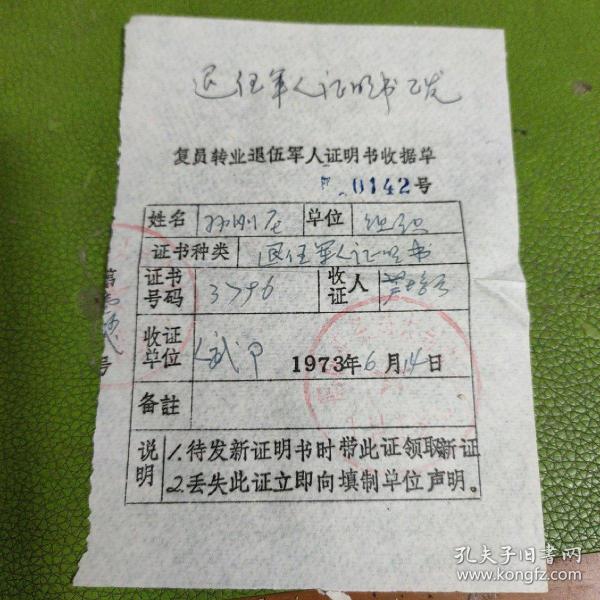 退伍军人证明书已发
复员转业退伍军人证明书收据单
0142号
姓名 孙刚 单位 组织
证书种类 退伍军人证明书
证书号码 3796 收证人
收证单位 人武 1973年6月14日
备註
说明 1.待发新证明书时带此证领取新证
2.丢失此证立即向填制单位声明。
第
号
孔夫子旧书网
www.kongfz.com